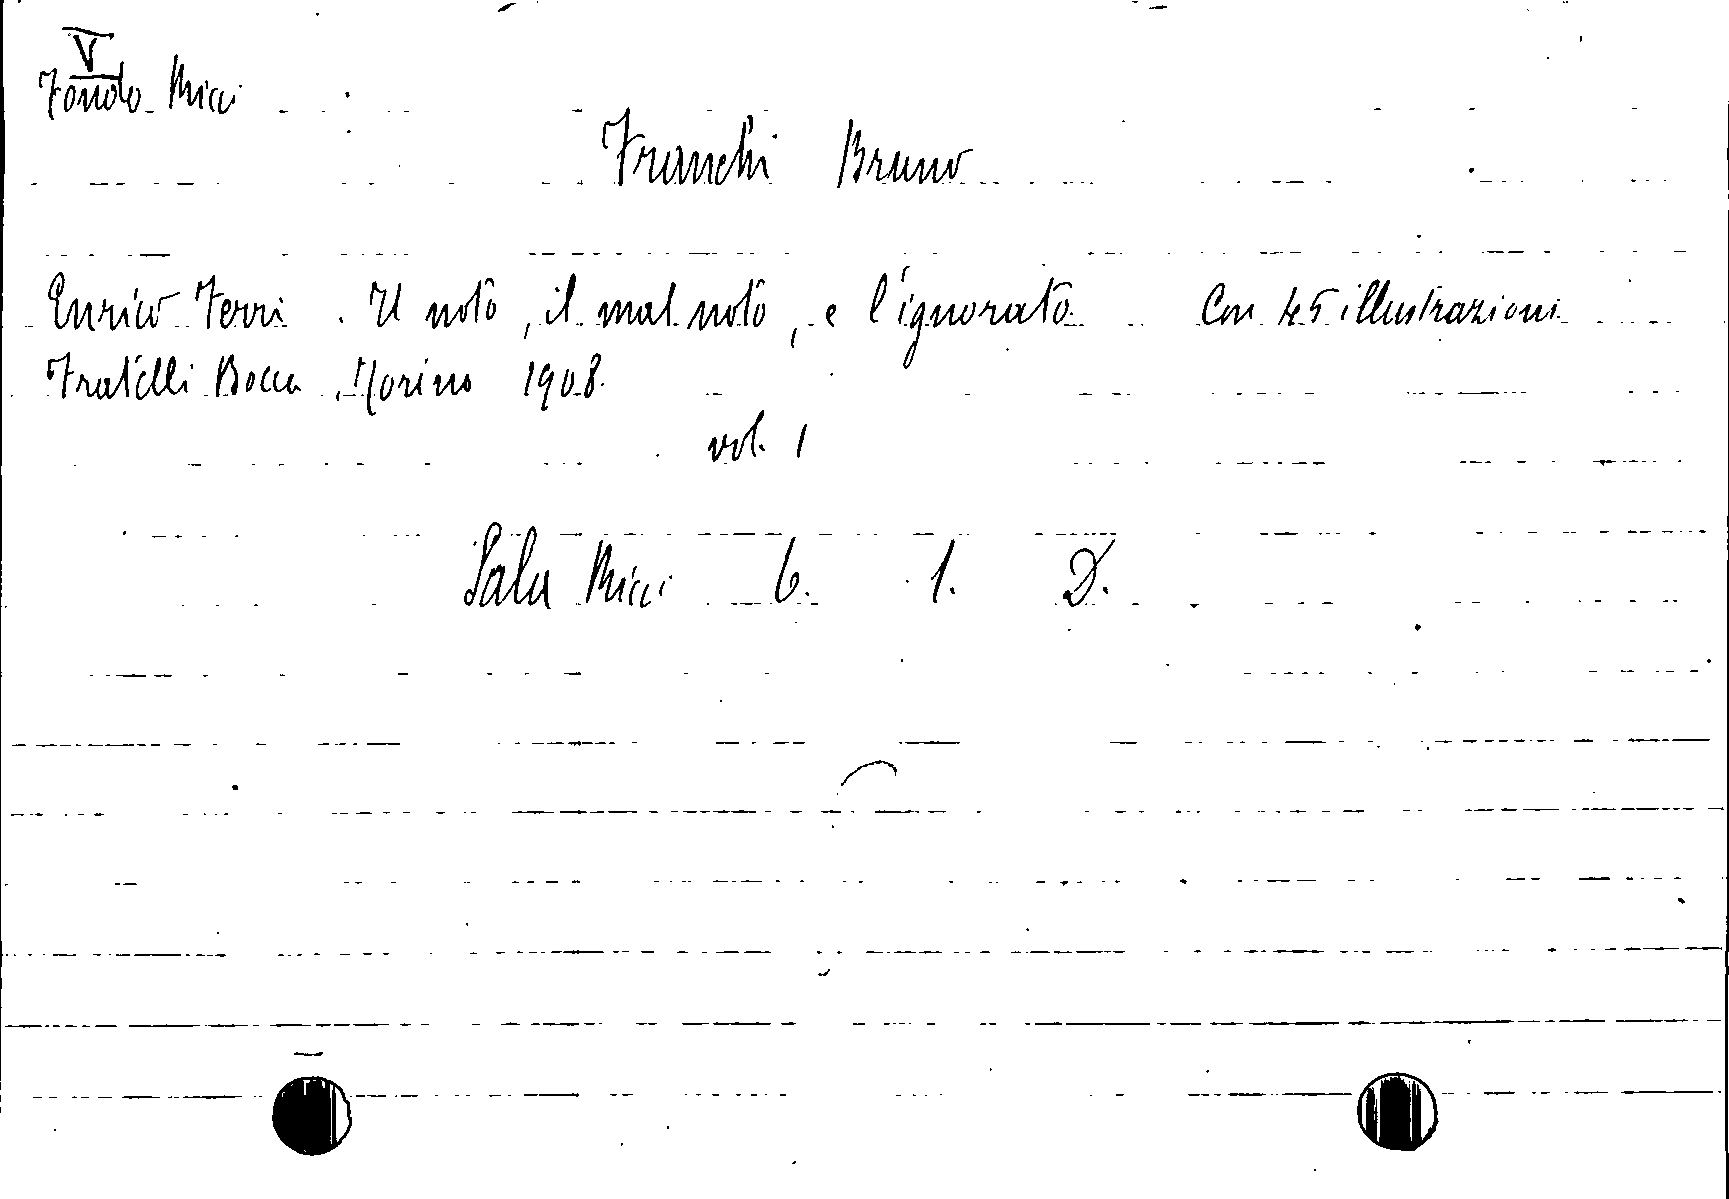 V
Fondo Ricci
Franchi Bruno
Enrico Ferri. Il noto, il mal noto, e l'ignorato Con 45 illustrazioni
Fratelli Bocca. Torino 1908.
vol. 1
Sala Ricci 6. 1. D.